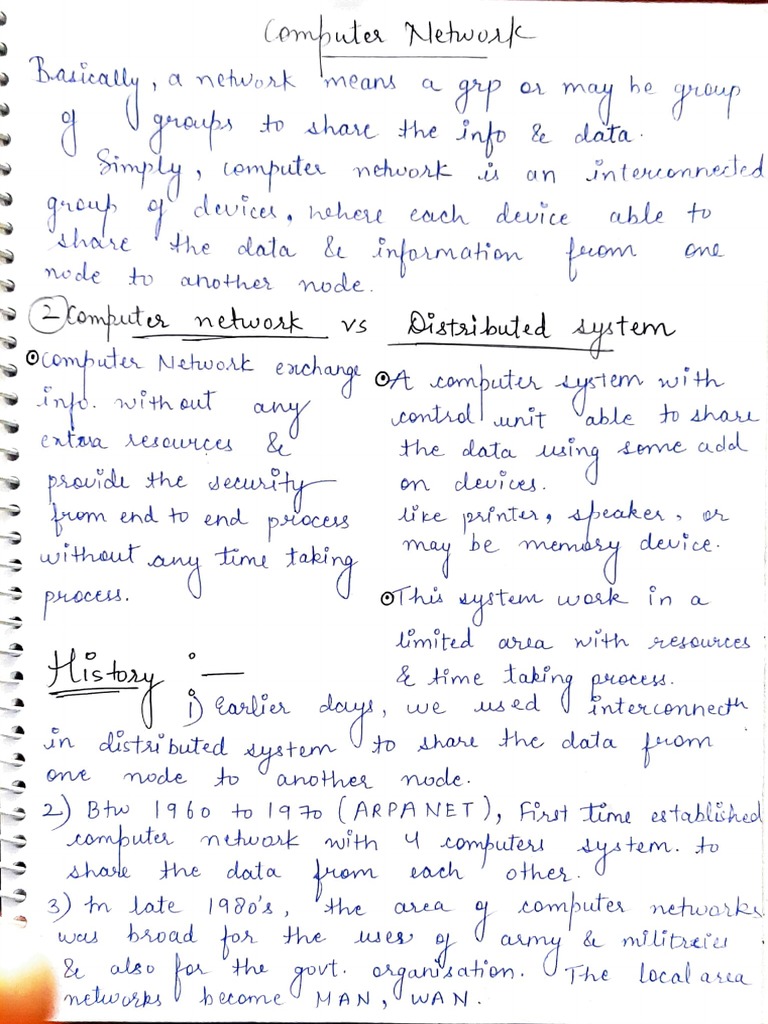 Computer Network
Basically, a network means a grp or may be group
of groups to share the info & data.
Simply, computer network is an interconnected
group of devices, where each device able to
share the data & information from one
node to another node.
2 Computer network vs Distributed system
Computer Network exchange
info. without any
extra resources &
provide the security
from end to end process
without any time taking
process.
A computer system with
control unit able to share
the data using some add
on devices.
like printer, speaker, or
may be memory device.
This system work in a
limited area with resources
& time taking process.
History :-
i) Earlier days, we used interconnectn
in distributed system to share the data from
one node to another node.
2) Btw 1960 to 1970 (ARPANET), First time established
computer network with 4 computers system. to
share the data from each other.
3) In late 1980's, the area of computer networks
was broad for the uses of army & militreies
& also for the govt. organisation. The local area
networks become MAN, WAN.